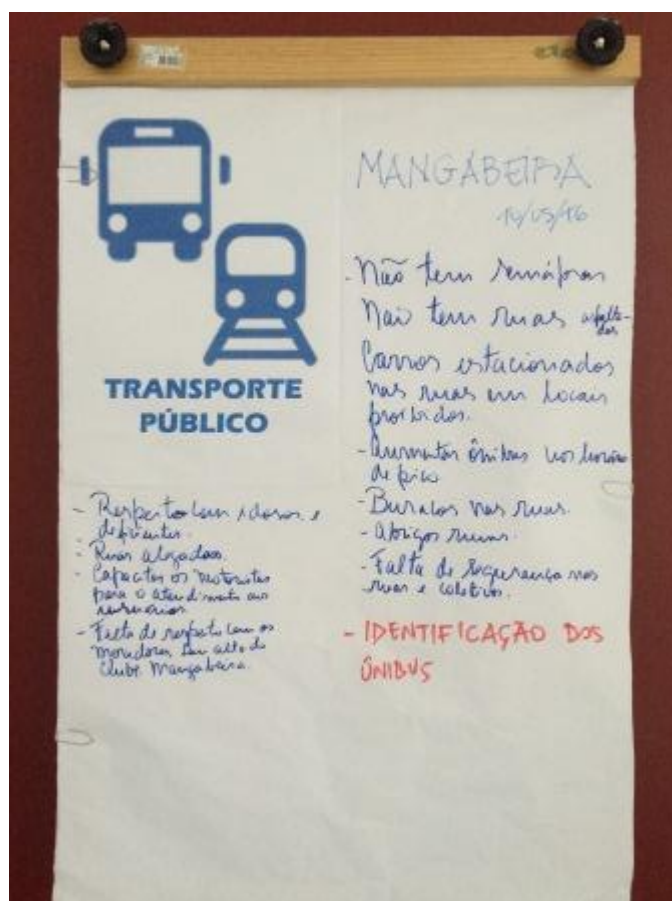 TRANSPORTE
PÚBLICO
- Respeito com idosos e
deficientes.
- Ruas alagadas.
- Capacitar os motoristas
para o atendimento aos
- Falta de respeito com os
moradores do alto do
Clube Mangabeira.
MANGABEIRA
10/05/16
- Não tem semáforos
Não tem ruas asfalta-
das
Carros estacionados
nas ruas em locais
proibidos.
- Aumentar ônibus nos horários
de pico
- Buracos nas ruas.
- Abrigos ruins.
- Falta de segurança nas
ruas e coletivos.
- IDENTIFICAÇÃO DOS
ÔNIBUS